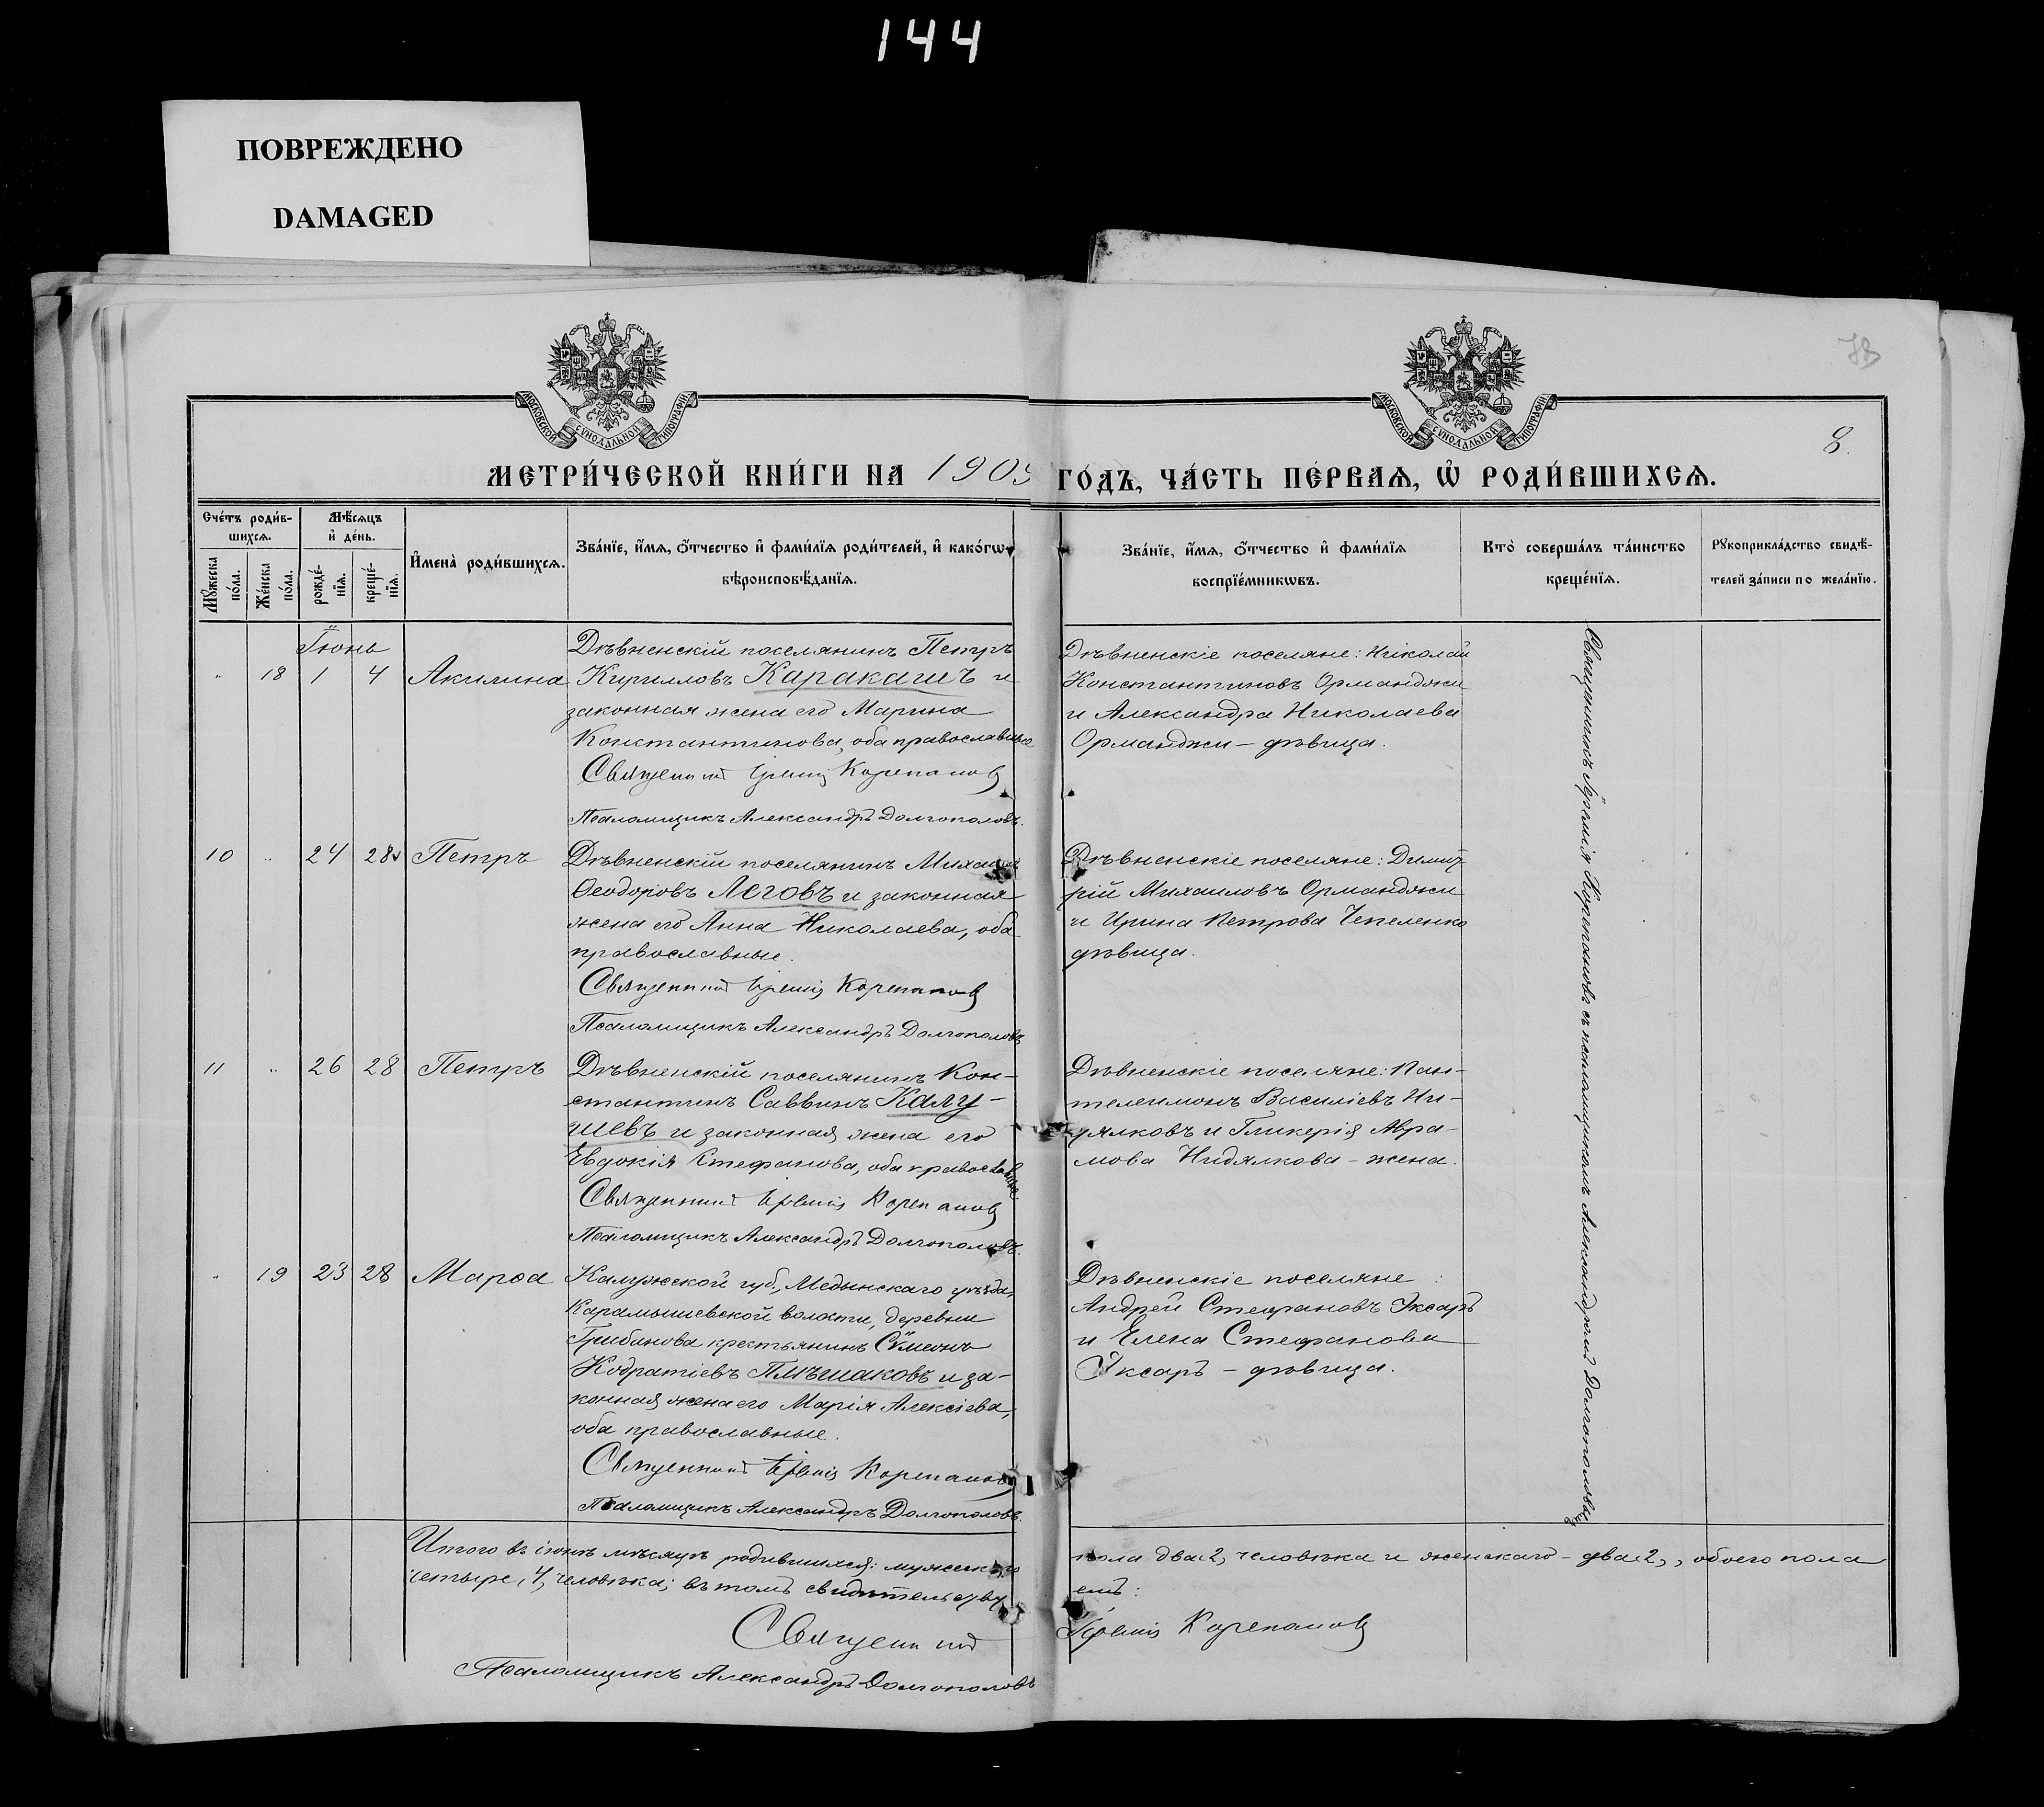 144
ПОВРЕЖДЕНО
DAMAGED
78
8.
МОСКОВСКОЙ СѴНОДАЛЬНОЙ ТИПОГРАФІИ
МОСКОВСКОЙ СѴНОДАЛЬНОЙ ТИПОГРАФІИ
МЕТРИ́ЧЕСКОЙ КНИ́ГИ НА 1909 ГО́ДЪ, ЧА́СТЬ ПЕ́РВАѦ, Ѡ РОДИ́ВШИХСѦ.
Сче́тъ роди́в-
шихсѧ.
Мѹжеска по́ла.
Же́нска по́ла.
Мѣ́сѧцъ
и де́нь.
рожде́-
нїѧ.
креще́-
нїѧ.
Имена̀ роди́вшихсѧ.
Зва́нїе, и́мѧ, ѻ́тчество и фами́лїѧ роди́телей, и како́гѡ
вѣроисповѣ́данїѧ.
Зва́нїе, и́мѧ, ѻ́тчество и фами́лїѧ
воспрїе́мникѡвъ.
Кто̀ соверша́лъ та́инство
креще́нїѧ.
Рѹкоприкла́дство свидѣ́-
телей за́писи по жела́нїю.
Іюнь
" 18 1 4 Акилина
Дѣвненскій поселянинъ Петръ
Кирилловъ Каракашъ и
законная жена его Марина
Константинова, оба православные
Священникъ Іеремія Корепановъ
Псаломщикъ Александръ Долгополовъ.
Дѣвненскіе поселяне: Николай
Константиновъ Орманджи
и Александра Николаева
Орманджи – дѣвица.
Священникъ Іеремія Корепановъ съ псаломщикомъ Александромъ Долгополовымъ
10 " 24 28 Петръ
Дѣвненскій поселянинъ Михаилъ
Ѳеодоровъ Леговъ и законная
жена его Анна Николаева, оба
православные.
Священникъ Іеремія Корепановъ
Псаломщикъ Александръ Долгополовъ
Дѣвненскіе поселяне: Димит-
рій Михаиловъ Орманджи
и Ирина Петрова Чепеленко
дѣвица.
11 " 26 28 Петръ
Дѣвненскій поселянинъ Кон-
стантинъ Саввинъ Калу-
шевъ и законная жена его
Евдокія Стефанова, оба православные.
Священникъ Іеремія Корепановъ
Псаломщикъ Александръ Долгополовъ.
Дѣвненскіе поселяне: Пан-
телеимонъ Василіевъ Ни-
дялковъ и Гликерія Авра-
мова Нидялкова – жена.
" 19 23 28 Марѳа
Калужской губ., Медынскаго уѣзда,
Карамышевской волости, деревни
Грибанова крестьянинъ Сѵмеонъ
Кодратіевъ Плѣшаковъ и за-
конная жена его Марія Алексіева,
оба православные.
Священникъ Іеремія Корепановъ
Псаломщикъ Александръ Долгополовъ.
Дѣвненскіе поселяне:
Андрей Стефановъ Эксаръ
и Елена Стефанова
Эксаръ – дѣвица.
Итого въ іюнѣ мѣсяцѣ родившихся: мужескаго пола два 2, человѣка и женскаго – два 2, обоего пола
четыре, 4, человѣка; въ томъ свидѣтельствуемъ:
Священникъ Іеремія Корепановъ
Псаломщикъ Александръ Долгополовъ